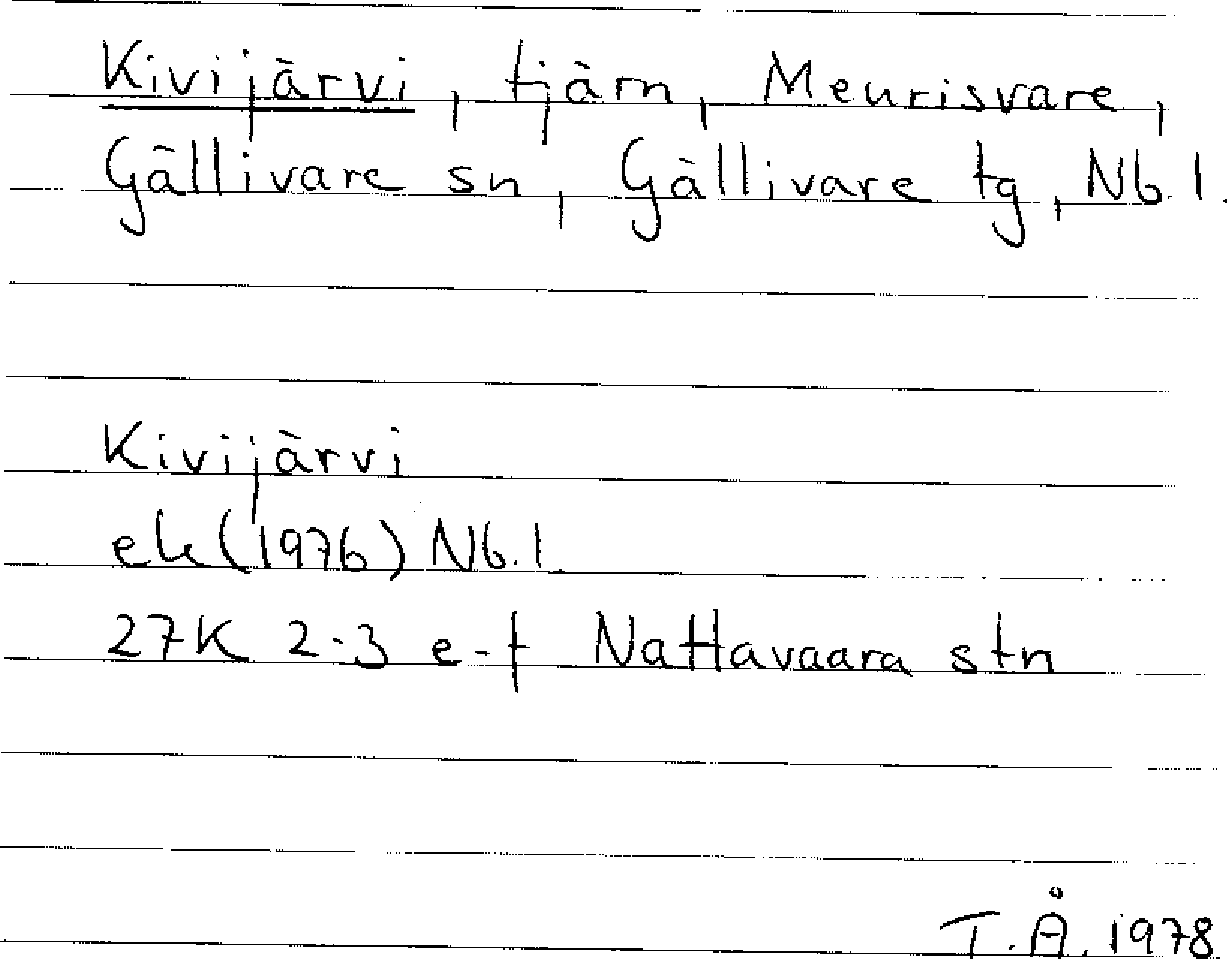 Kivijärvi, tjärn, Meurisvare,
Gällivare sn, Gällivare tg, Nb. l.
Kivijärvi
ek (1976) Nb. l.
27K 2-3 e-f Nattavaara stn
T.Å. 1978